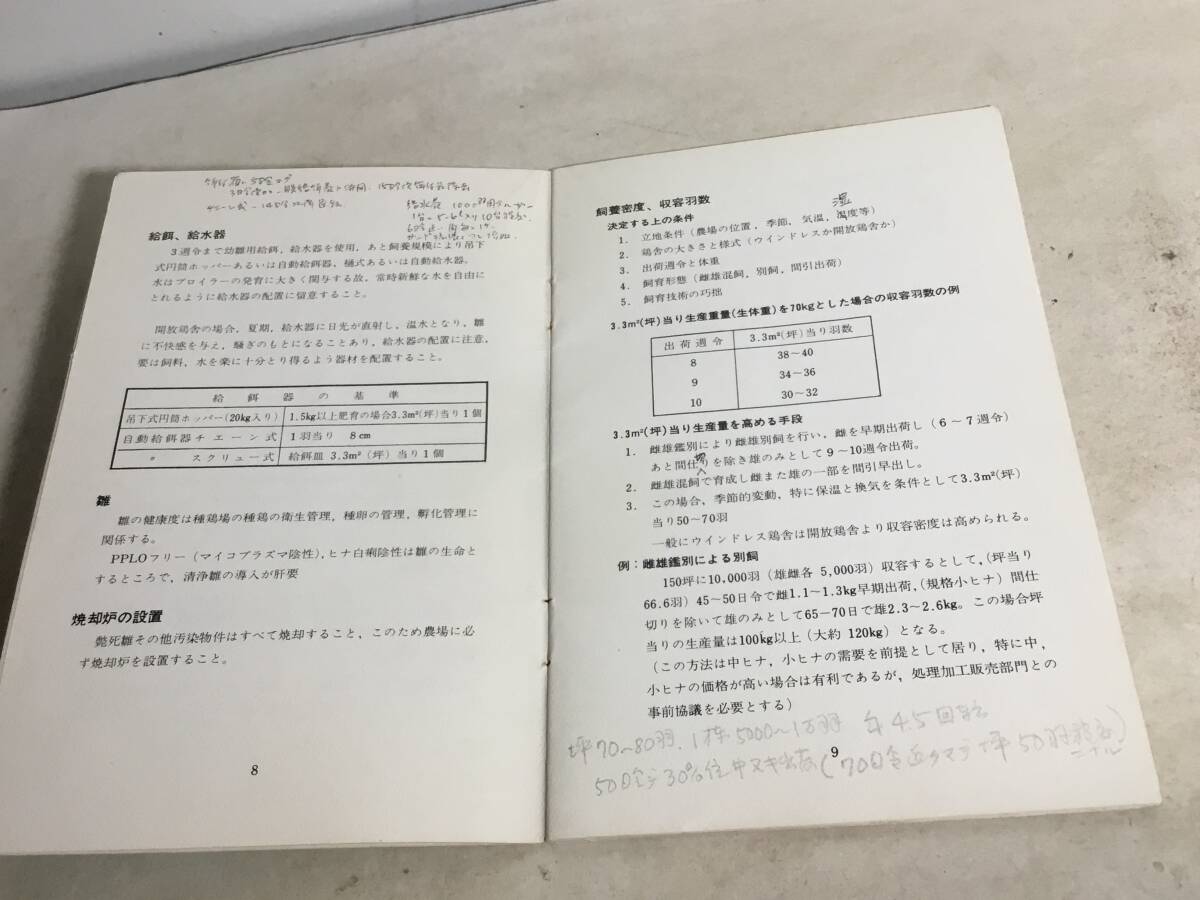 給餌、給水器
3週令まで幼雛用給餌，給水器を使用，あと飼養規模により吊下
式円筒ホッパーあるいは自動給餌器，樋式あるいは自動給水器。
水はブロイラーの発育に大きく関与する故，常時新鮮な水を自由に
とれるように給水器の配置に留意すること。
開放鶏舎の場合，夏期，給水器に日光が直射し，温水となり，雛
に不快感を与え，騒ぎのもとになることあり，給水器の配置に注意，
要は飼料，水を楽に十分とり得るよう器材を配置すること。
給餌器の基準
吊下式円筒ホッパー(20kg入り) 1.5kg以上肥育の場合3.3m²(坪)当り1個
自動給餌器チエーン式 1羽当り 8cm
〃 スクリュー式 給餌皿 3.3m²(坪)当り1個
雛
雛の健康度は種鶏場の種鶏の衛生管理，種卵の管理，孵化管理に
関係する。
PPLOフリー(マイコプラズマ陰性)，ヒナ白痢陰性は雛の生命と
するところで，清浄雛の導入が肝要
焼却炉の設置
斃死雛その他汚染物件はすべて焼却すること，このため農場に必
ず焼却炉を設置すること。
8
飼養密度、収容羽数
湿
決定する上の条件
1. 立地条件(農場の位置，季節，気温，湿度等)
2. 鶏舎の大きさと様式(ウインドレスか開放鶏舎か)
3. 出荷週令と体重
4. 飼育形態(雌雄混飼，別飼，間引出荷)
5. 飼育技術の巧拙
3.3m²(坪)当り生産重量(生体重)を70kgとした場合の収容羽数の例
出荷週令 3.3m²(坪)当り羽数
8 38〜40
9 34〜36
10 30〜32
3.3m²(坪)当り生産量を高める手段
1. 雌雄鑑別により雌雄別飼を行い，雌を早期出荷し(6〜7週令)
あと間仕切りを除き雄のみとして9〜10週令出荷。
2. 雌雄混飼で育成し雌また雄の一部を間引早出し。
3. この場合，季節的変動，特に保温と換気を条件として3.3m²(坪)
当り50〜70羽
一般にウインドレス鶏舎は開放鶏舎より収容密度は高められる。
例：雌雄鑑別による別飼
150坪に10,000羽(雄雌各5,000羽)収容するとして，(坪当り
66.6羽)45〜50日令で雌1.1〜1.3kg早期出荷，(規格小ヒナ)間仕
切りを除いて雄のみとして65−70日で雄2.3〜2.6kg。この場合坪
当りの生産量は100kg以上(大約120kg)となる。
(この方法は中ヒナ，小ヒナの需要を前提として居り，特に中，
小ヒナの価格が高い場合は有利であるが，処理加工販売部門との
事前協議を必要とする)
坪70〜80羽．1棟5000〜1万羽 年4.5回転
9
50日令デ30%位中ヌキ出荷(70日令近クマデ坪50羽
ニナル)